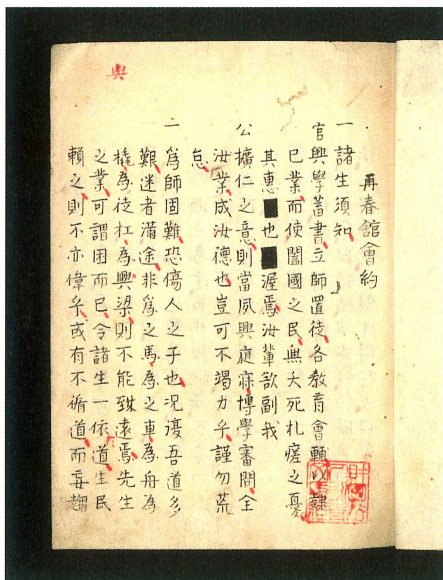 再春館會約
一 諸生須知
官興學蓄書立師置徒各教育會輔以肄
已業而使闔國之民無夭死札瘥之憂
其惠■也■渥焉汝輩欲副我
公擴仁之意則當夙興寐博學審問全
汝業成汝德也豈可不竭力乎謹勿荒
怠
二 為師固難恐傷人之子也況吾道多
艱迷者滿途非為之馬為之車為舟為
橇為徒杠為輿梁則不能致遠焉先生
之業可謂困而已令諸生一依道生民
賴之則不亦偉乎或有不循道而妄
興